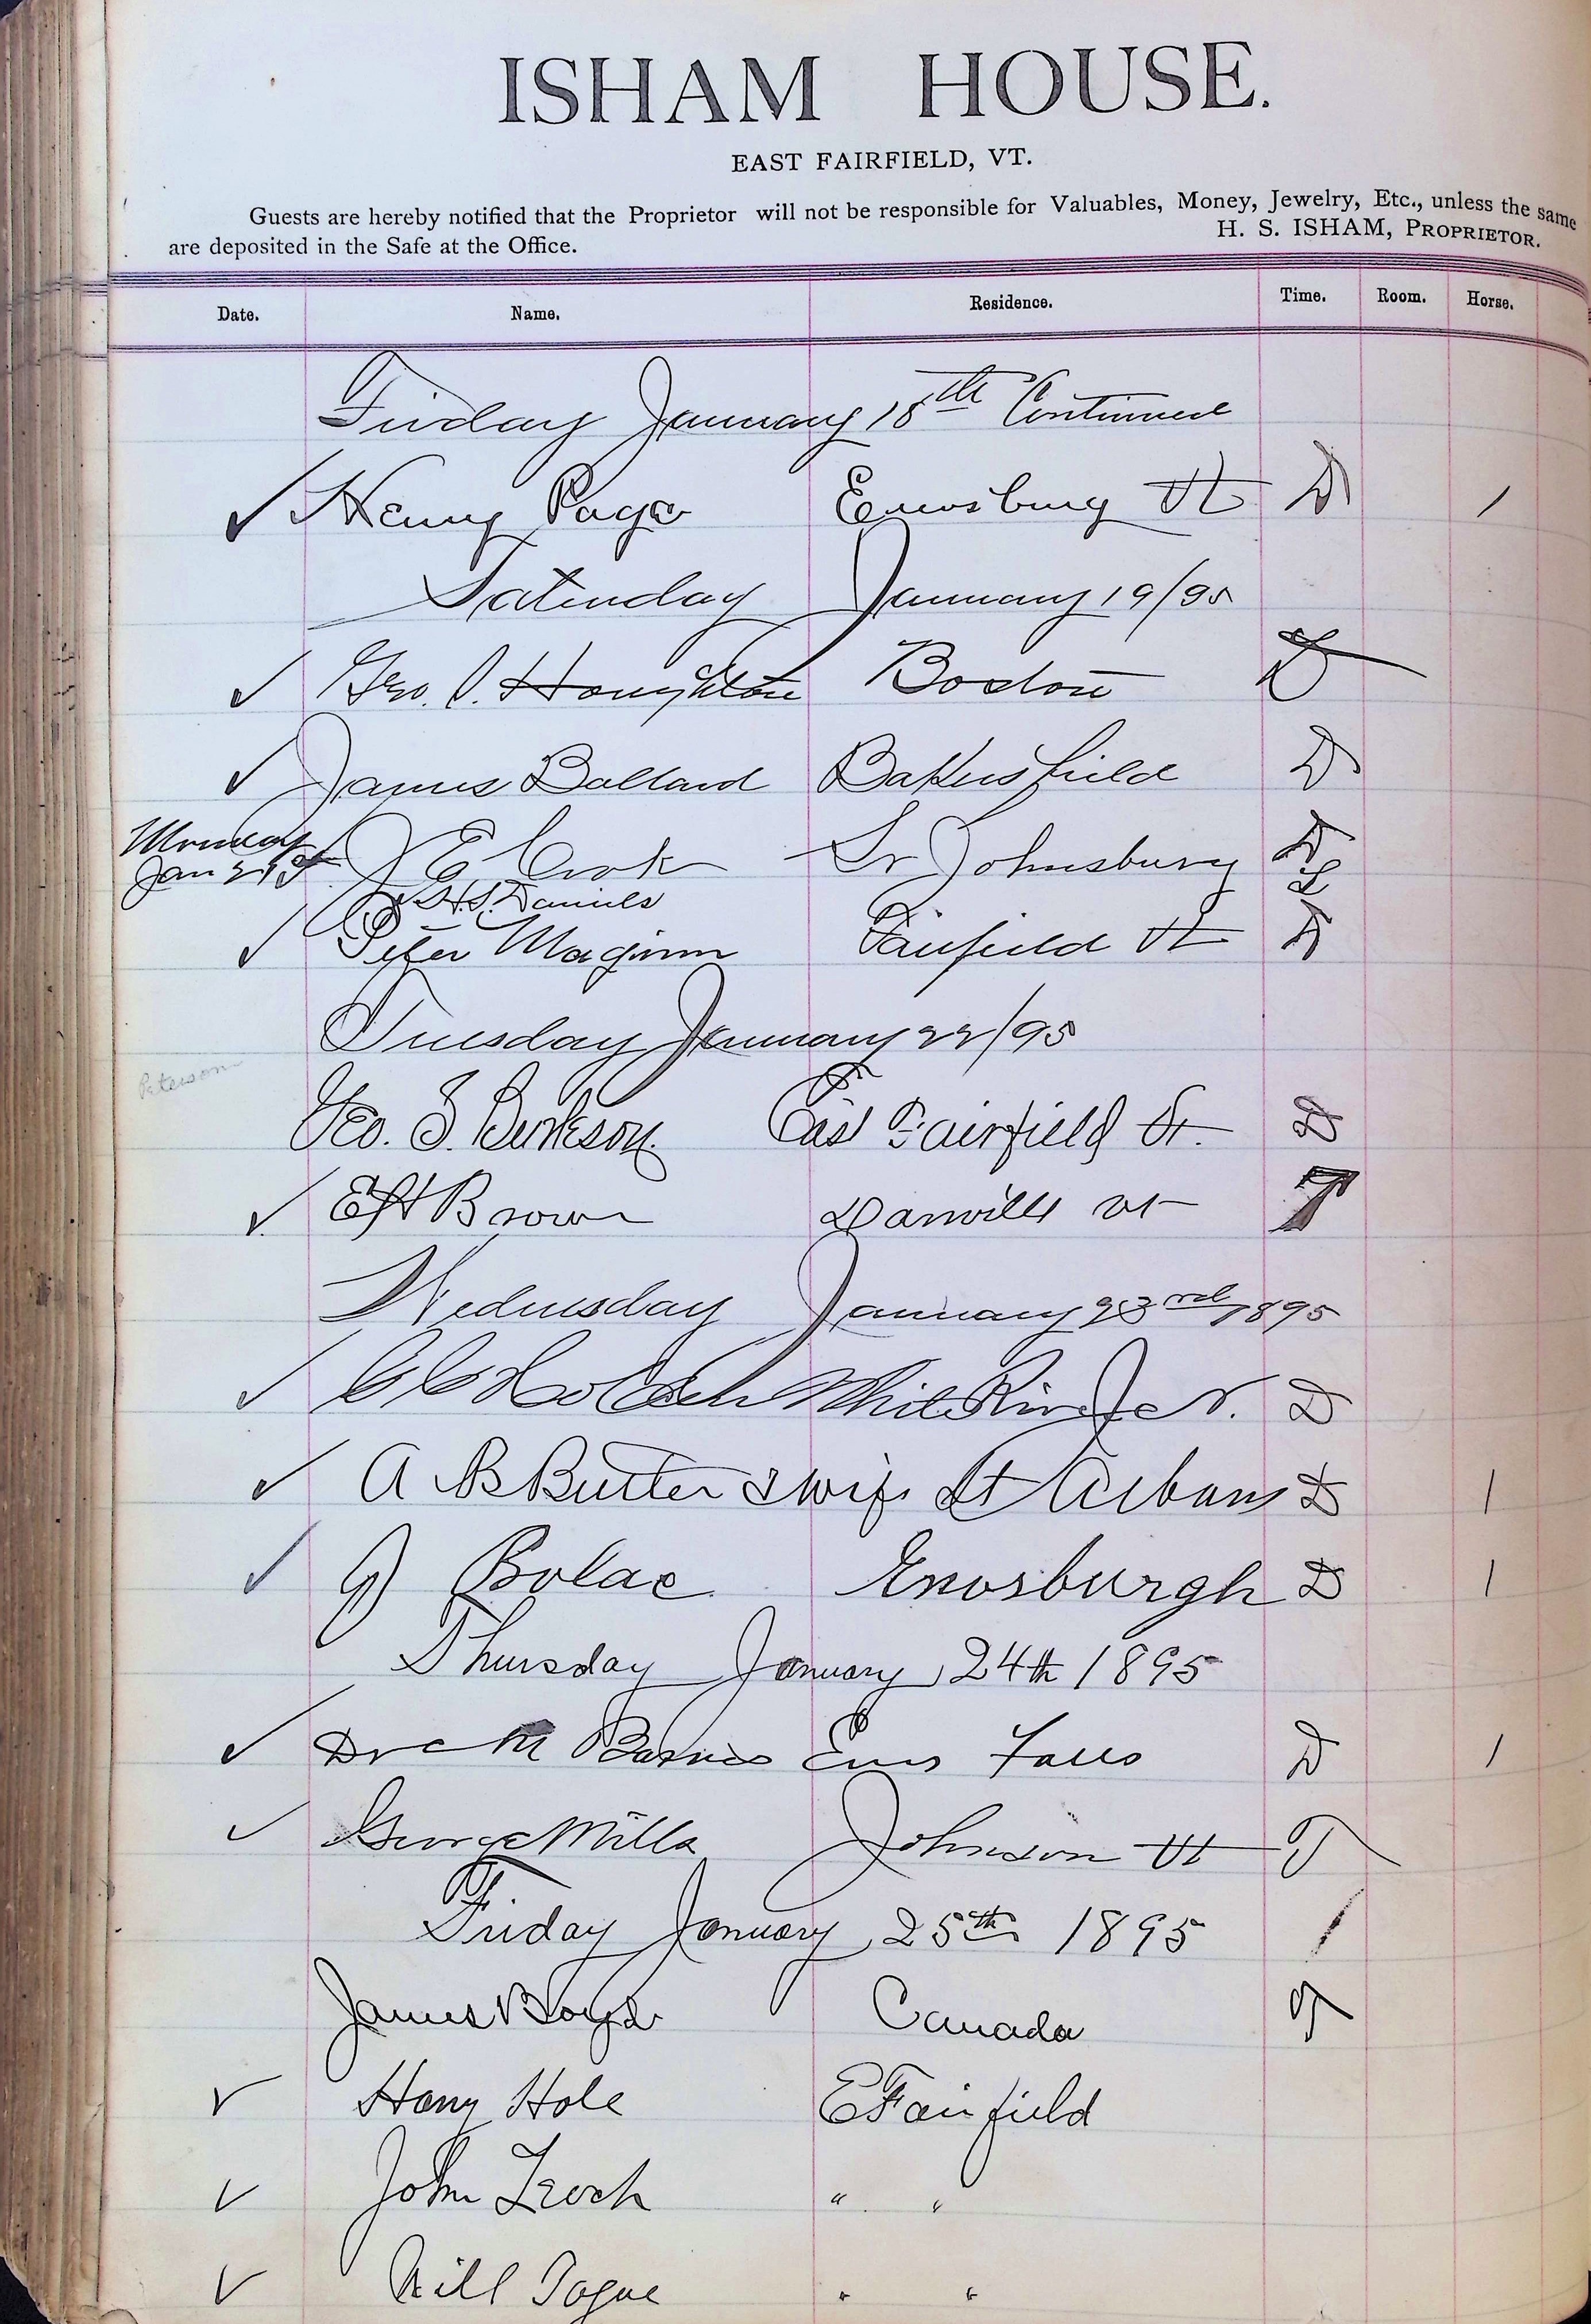 ISHAM HOUSE.
EAST FAIRFIELD, VT.
Guests are hereby notified that the Proprietor will not be responsible for Valuables, Money, Jewelry, Etc., unless the same
are deposited in the Safe at the Office.
H. S. ISHAM, PROPRIETOR.
Date. Name. Residence. Time. Room. Horse.
Friday January 18th Continued
✓ Henry Page Enosburg Vt D 1
Saturday January 19/95
✓ Geo. I. Houghton Boston D
✓ James Ballard Bakersfield D
Monday Jan 21st J E Cook St Johnsbury D
H.S. Daniels L
✓ Peter Maginn Fairfield Vt D
Tuesday January 22/95
Peterson
Geo. S. East Fairfield Vt. D
✓ E H Brown Danville Vt T
Wednesday January 23rd 1895
✓ C C Holden White River Jc V. D
✓ A B Butler & wife St Albans D 1
✓ J Bolac Enosburgh D 1
Thursday January 24th 1895
✓ Dr C M Barnes Enos Falls D 1
✓ George Mills Johnson Vt T
Friday January 25th 1895 1
James Boyd Canada T
✓ Harry Hole E Fairfield
✓ John Leach " "
✓ Will Togue " "